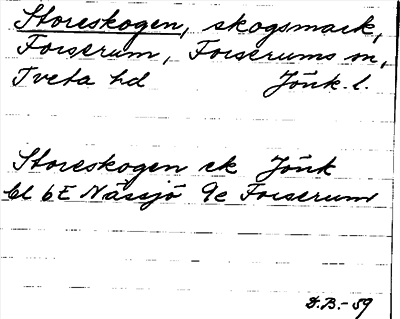 Storeskogen, skogsmark,
Forserum, Forserums sn,
Tveta hd Jönk. l.
Storeskogen ek Jönk
bl 6E Nässjö 9e Forserum
D.B.-59